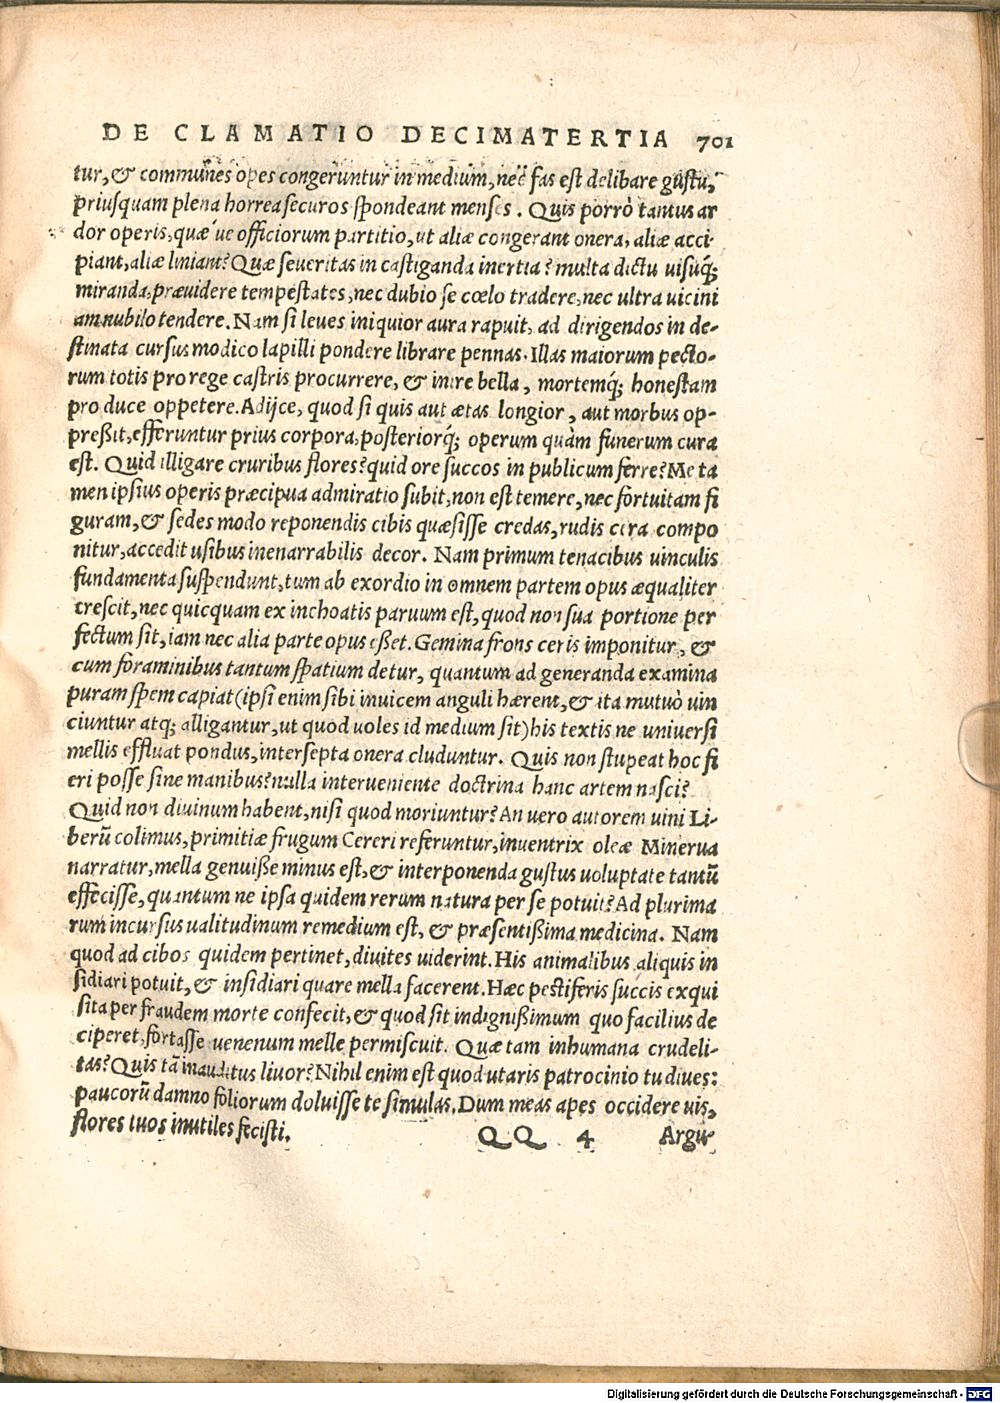 DE CLAMATIO DECIMATERTIA 701
tur, & communes opes congeruntur in medium, nec fas est delibare gustu,
priusquam plena horrea securos spondeant menses. Quis porrò tantus ar
dor operis, quæ ue officiorum partitio, ut aliæ congerant onera, aliæ acci-
piant, aliæ liniant? Quæ seueritas in castiganda inertia? multa dictu uisuq́;
miranda, præuidere tempestates, nec dubio se cœlo tradere, nec ultra uicini
am nubilo tendere. Nam si leues iniquior aura rapuit, ad dirigendos in de-
stinata cursus modico lapilli pondere librare pennas. Illas maiorum pecto-
rum totis pro rege castris procurrere, & inire bella, mortemq́; honestam
pro duce oppetere. Adijce, quod si quis aut ætas longior, aut morbus op-
preßit, efferuntur prius corpora, posteriorq́; operum quàm funerum cura
est. Quid illigare cruribus flores? quid ore succos in publicum ferre? Me ta
men ipsius operis præcipua admiratio subit, non est temere, nec fortuitam fi
guram, & sedes modo reponendis cibis quæsisse credas, rudis cera compo
nitur, accedit usibus inenarrabilis decor. Nam primum tenacibus uinculis
fundamenta suspendunt, tum ab exordio in omnem partem opus æqualiter
crescit, nec quicquam ex inchoatis paruum est, quod non sua portione per
fectum sit, iam nec alia parte opus eßet. Gemina frons ceris imponitur, &
cum foraminibus tantum spatium detur, quantum ad generanda examina
puram spem capiat (ipsi enim sibi inuicem anguli hærent, & ita mutuò uin
ciuntur atq; alligantur, ut quod uoles id medium sit) his textis ne uniuersi
mellis effluat pondus, intersepta onera cluduntur. Quis non stupeat hoc fi
eri posse sine manibus? nulla interueniente doctrina hanc artem nasci?
Quid non diuinum habent, nisi quod moriuntur? An uero autorem uini Li-
berũ colimus, primitiæ frugum Cereri referuntur, inuentrix oleæ Minerua
narratur, mella genuiße minus est, & interponenda gustus uoluptate tantũ
effecisse, quantum ne ipsa quidem rerum natura per se potuit? Ad plurima
rum incursus ualitudinum remedium est, & præsentißima medicina. Nam
quod ad cibos quidem pertinet, diuites uiderint. His animalibus aliquis in
sidiari potuit, & insidiari quare mella facerent. Hæc pestiferis succis exqui
sita per fraudem morte confecit, & quod sit indignißimum quo facilius de
ciperet, fortasse uenenum melle permiscuit. Quæ tam inhumana crudeli-
tas? Quis tã inauditus liuor? Nihil enim est quod utaris patrocinio tu diues:
paucorũ damno foliorum doluisse te simulas. Dum meas apes occidere uis,
flores tuos inutiles fecisti.
QQ 4 Argu-
Digitalisierung gefördert durch die Deutsche Forschungsgemeinschaft - DFG